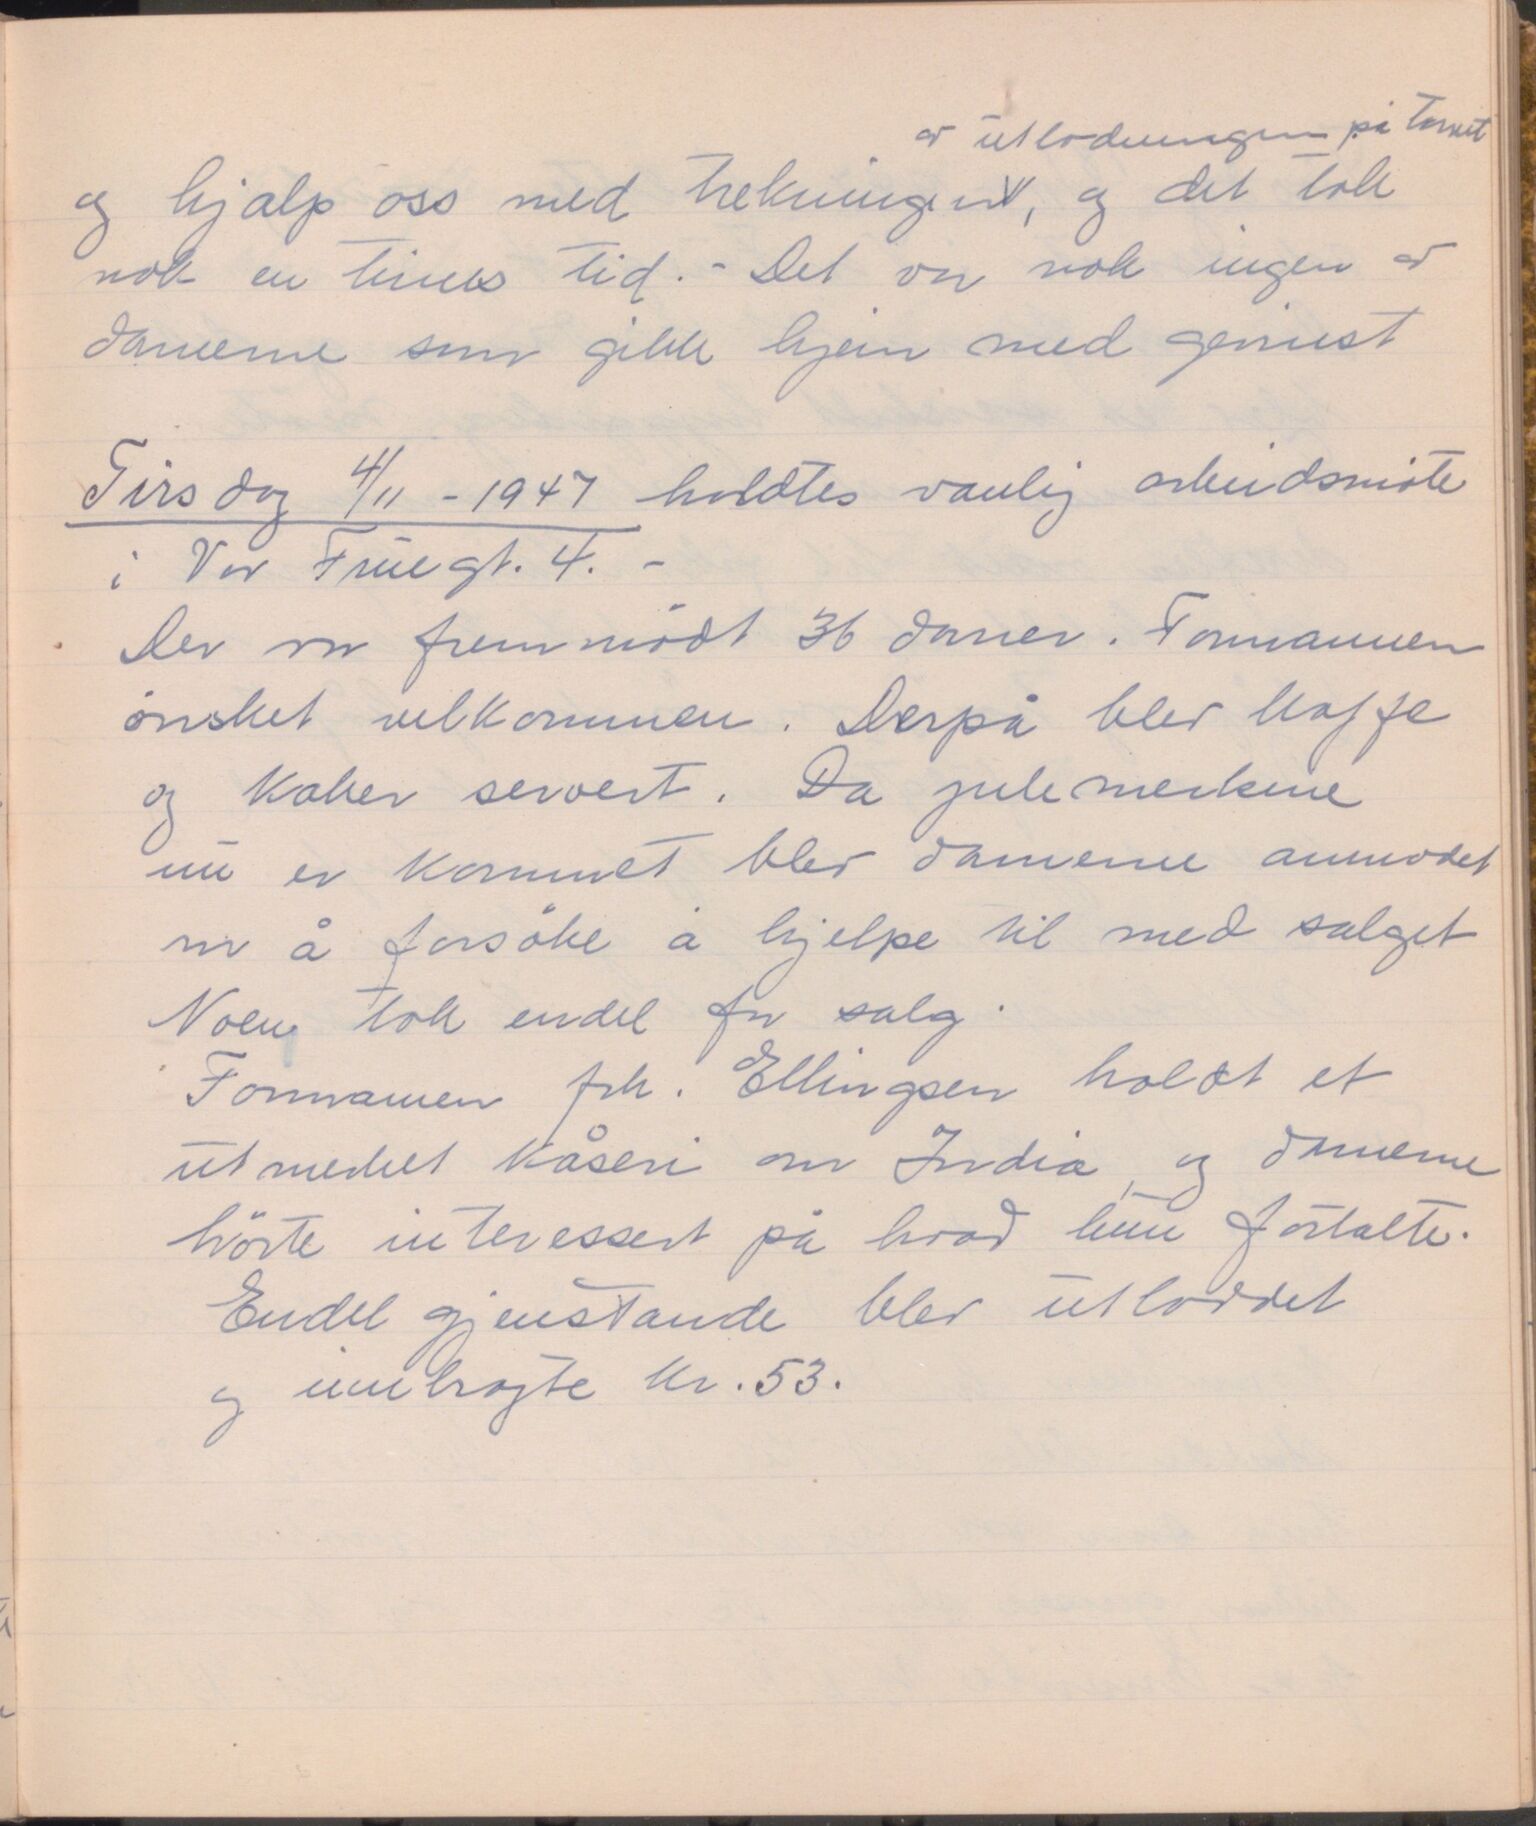 av utlodningen på Torvet
og hjalp oss med trekningen, og det tok
nok en times tid. - Det var nok ingen av
damerne som gikk hjem med gevinst
Tirsdag 4/11 - 1947 holdtes vanlig arbeidsmöte
i Vor Fruegt. 4. -
Der var fremmödt 36 damer. Formannen
önsket velkommen. Derpå blev kaffe
og kaker servert. Da julemerkene
nu er kommet blev damerne anmodet
om å forsöke å hjelpe til med salget
Noen tok endel for salg.
Formannen frk. Ellingsen holdt et
utmerket kåseri om India, og damerne
hörte interessert på hvad hun fortalte.
Endel gjenstande blev utloddet
og innbragte kr. 53.